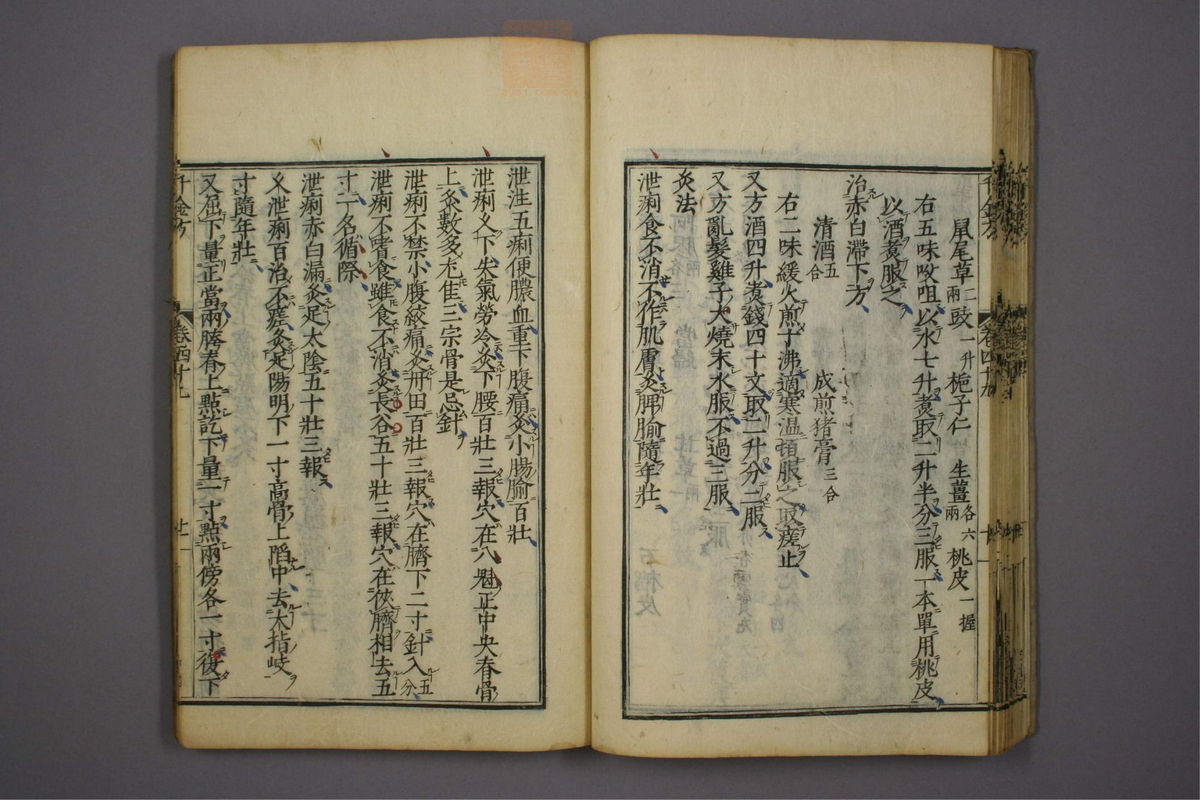 鼠尾草二兩豉一升梔子仁生薑各六兩桃皮一握
右五味㕮咀以水七升煮取二升半分三服一本單用桃皮
以酒煮服之
治赤白滯下方
清酒五合成煎猪膏三合
右二味緩火煎十沸適寒温頓服之取瘥止
又方酒四升煮錢四十文取二升分三服
又方亂髮雞子大燒末水服不過三服
灸法
泄痢食不消不作肌膚灸脾腧隨年壯
泄注五痢便膿血重下腹痛灸小腸腧百壯
泄痢久下失氣勞冷灸下腰百壯三報穴在八魁正中央脊骨
上灸數多尤佳三宗骨是忌針
泄痢不禁小腹絞痛灸丹田百壯三報穴在臍下二寸針入五分
泄痢不嗜食雖食不消灸長谷五十壯三報穴在俠臍相去五
寸一名循際
泄痢赤白漏灸足太陰五十壯三報
久泄痢百治不瘥灸足陽明下一寸高骨上陷中去大指歧
寸隨年壯
又屈下量正當兩胯脊上點訖下量一寸點兩傍各一寸復下
千金方
卷四十九